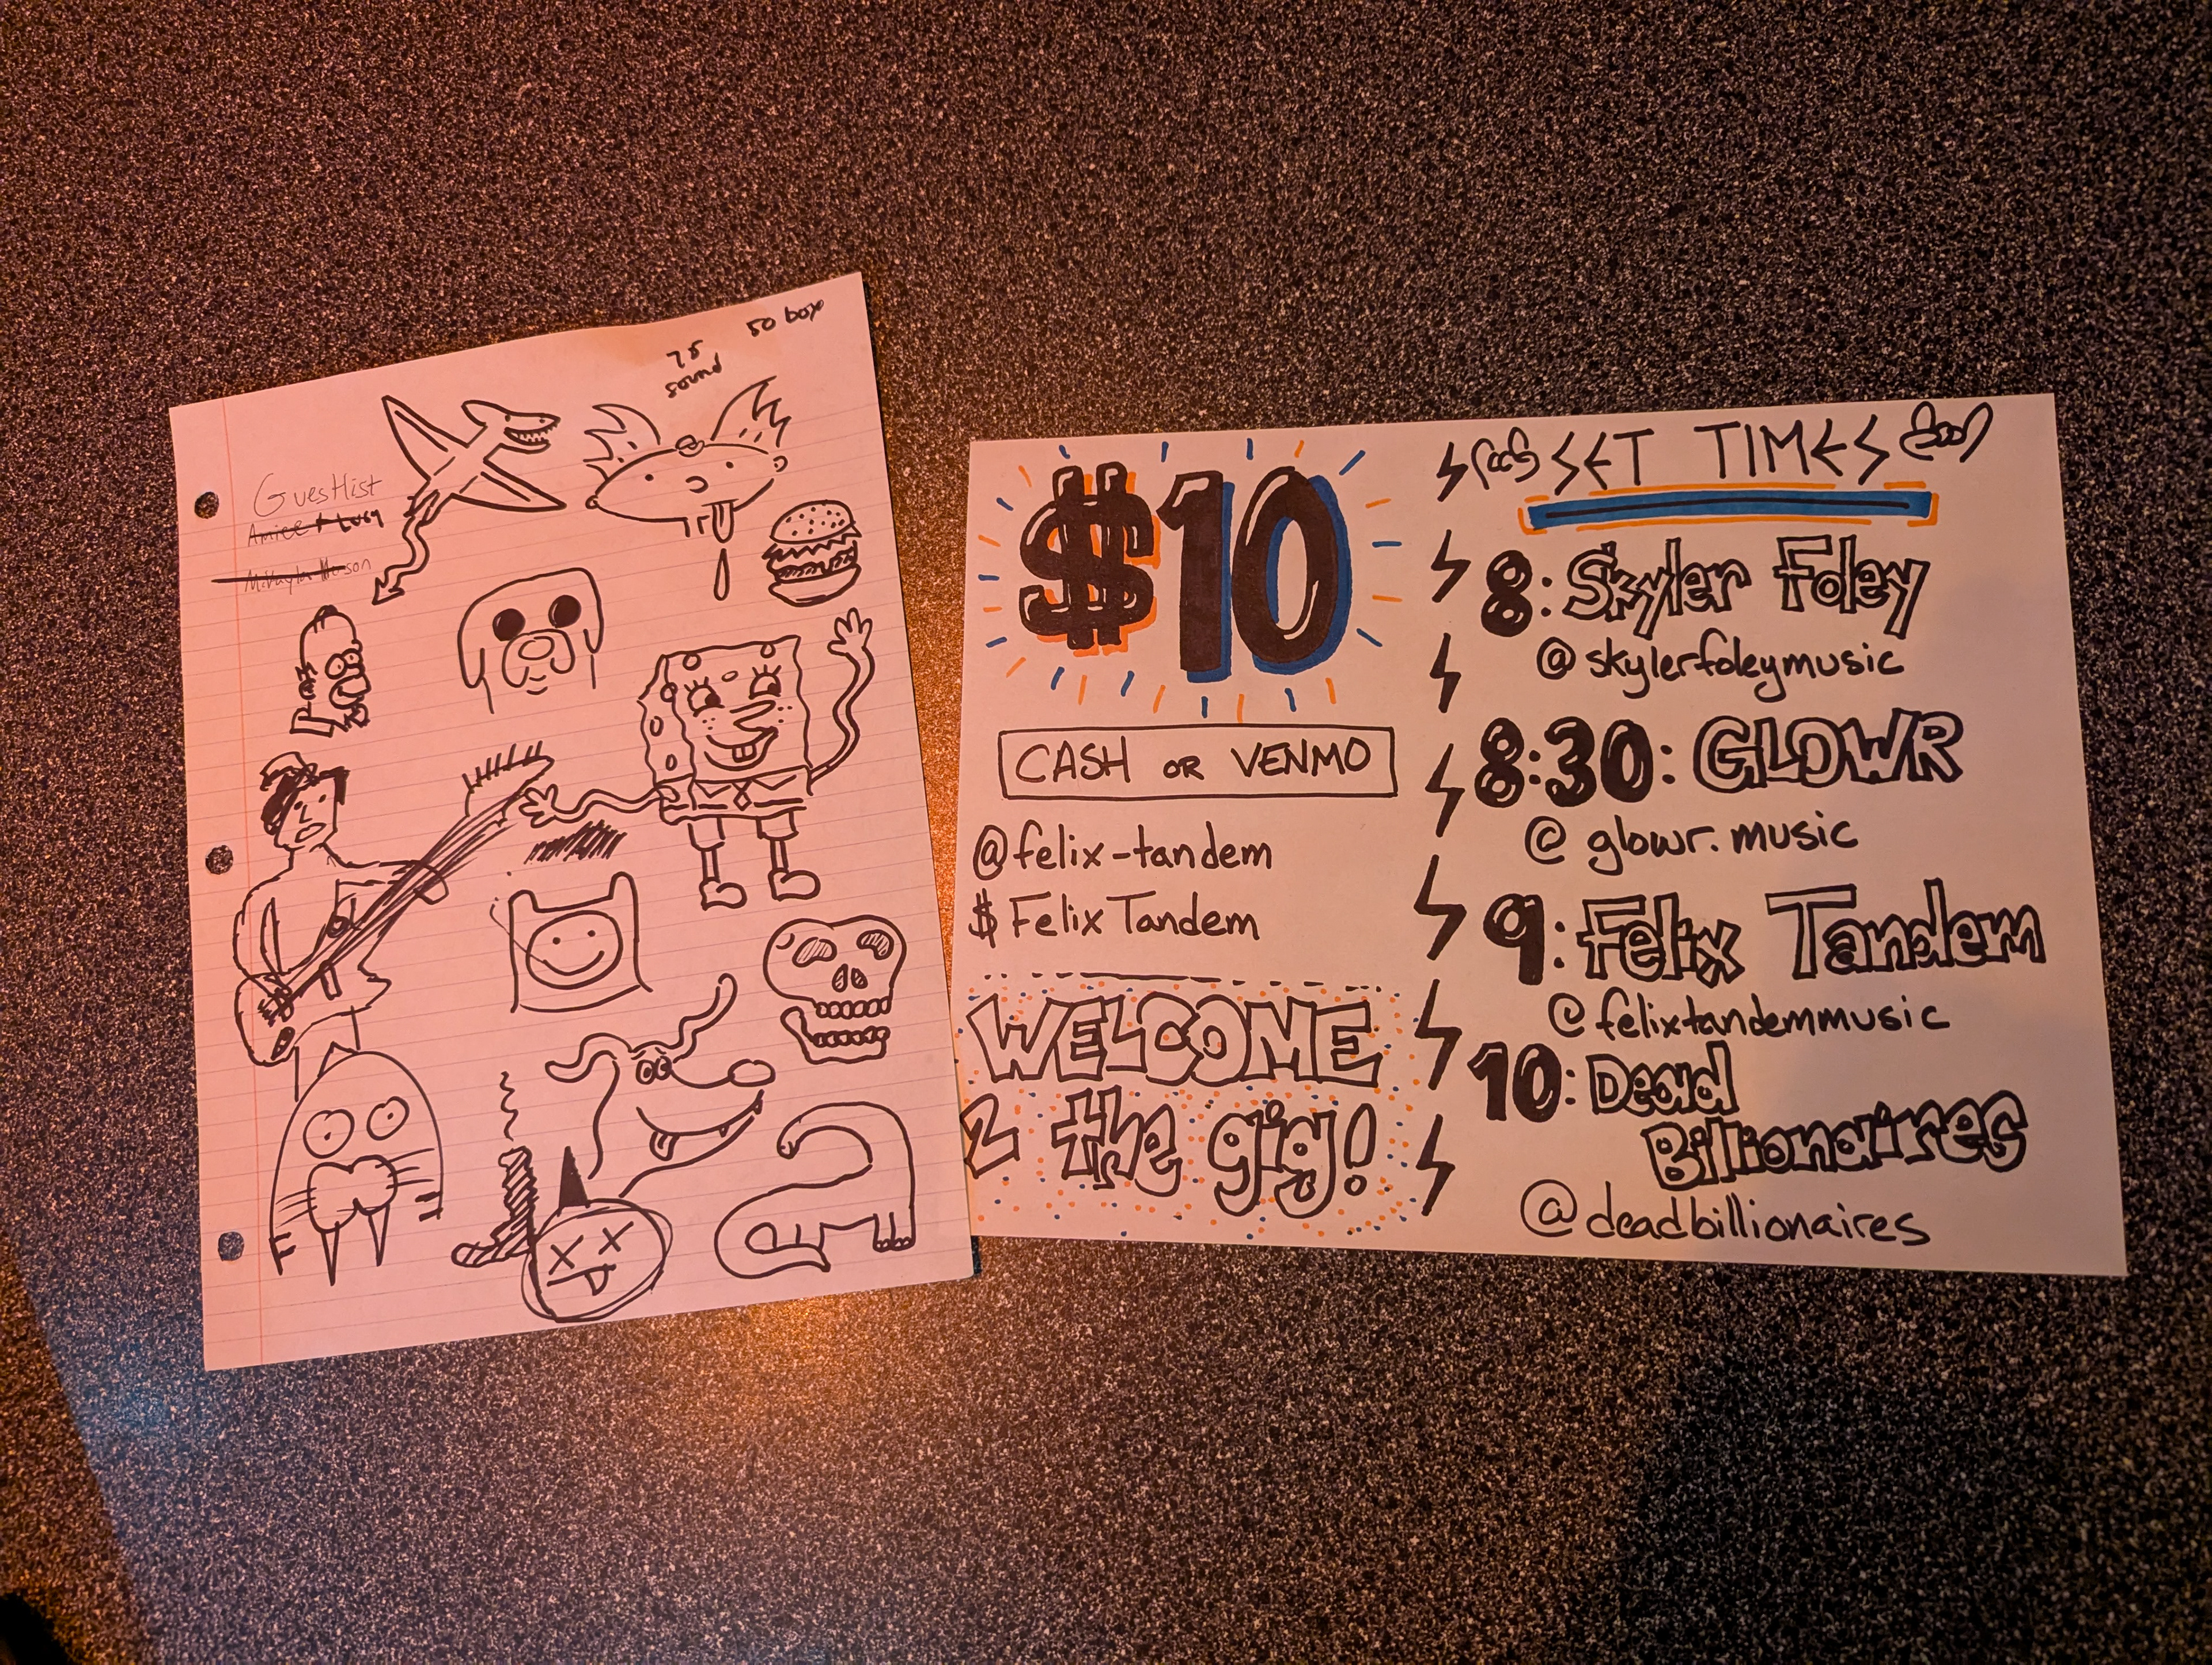 50 box
75
sound
Guestlist
Amiee + Lucy
$10
CASH OR VENMO
@felix-tandem
$ Felix Tandem
WELCOME
2 the gig!
SET TIMES
8: Skyler Foley
@skylerfoleymusic
8:30: GLOWR
@glowr.music
9: Felix Tandem
@felixtandemmusic
10: Dead
Billionaires
@deadbillionaires